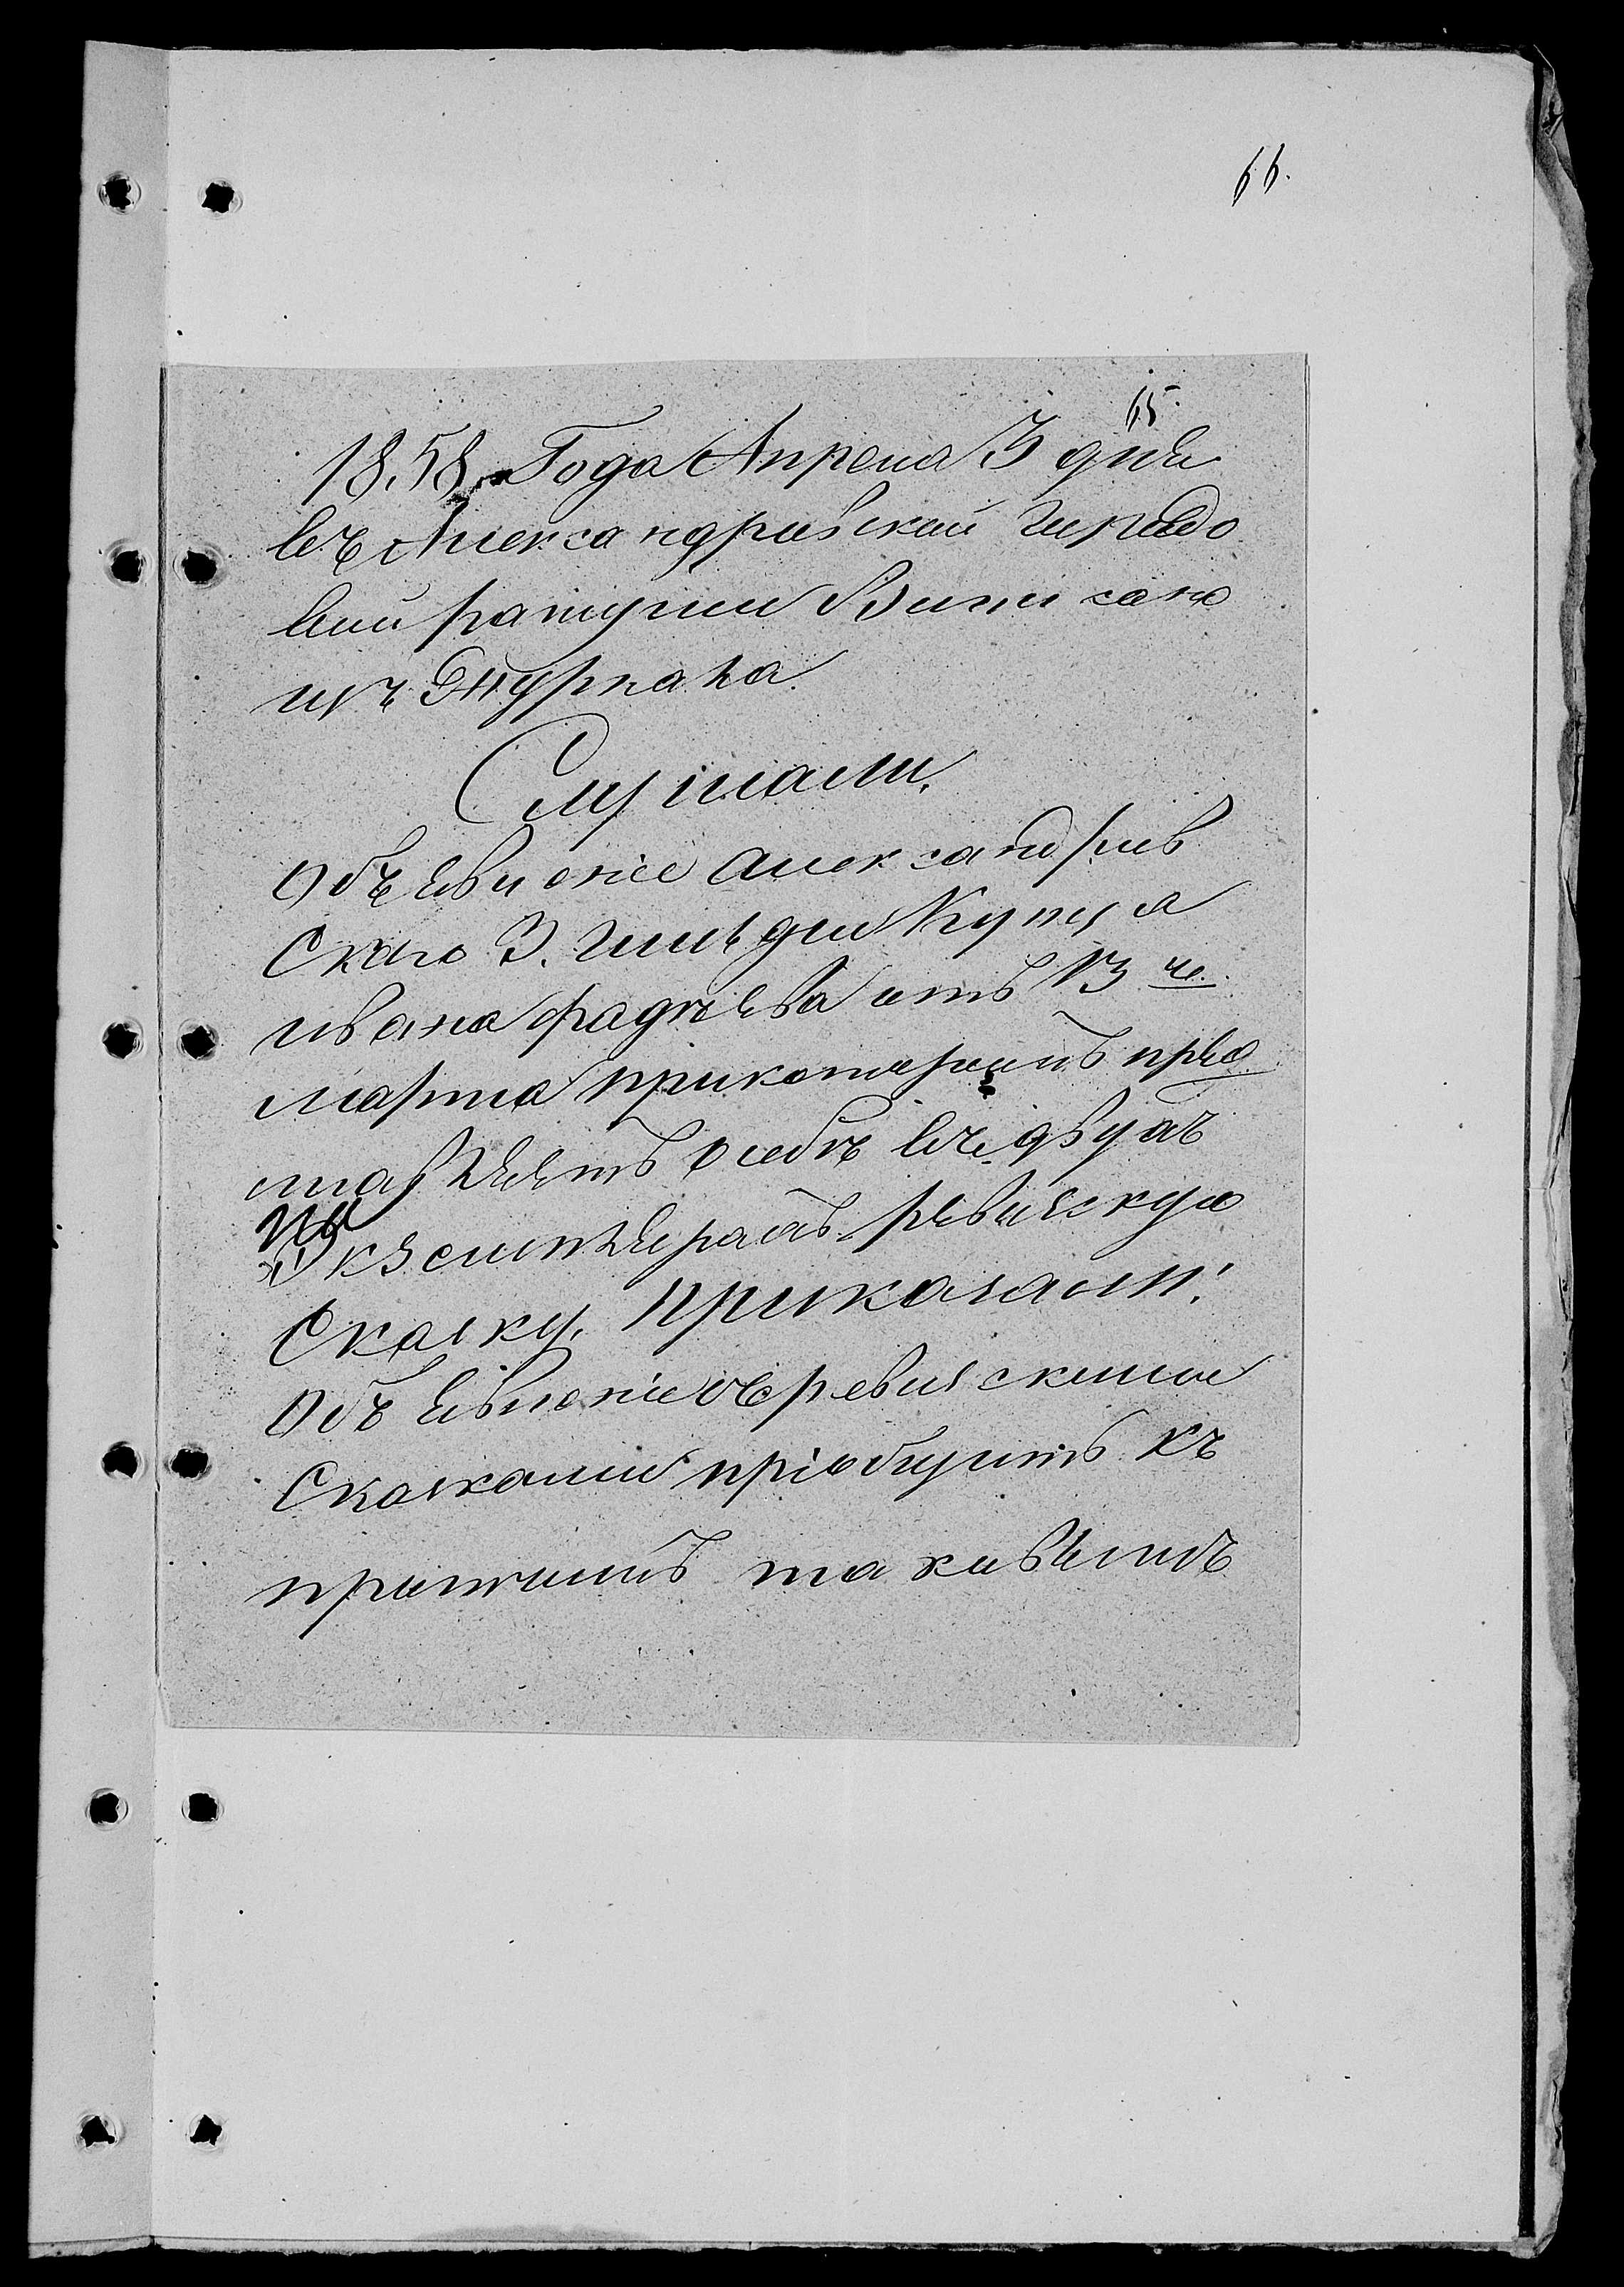 66.
65.
1858 Года Апреля 3 дня
въ Александровской городо
вой ратуши Выписано
изъ Журнала
Слушали,
Объявленіе Александров
Скаго 3. гильдіи Купца
ивана фадѣева отъ 13 го
марта прикоторомъ пред
ставляетъ осебѣ въ двухъ
Экземплярахъ ревизскую
Сказку, приказали:
Объявленіе съ ревизскими
Сказками пріобщить къ
протчимъ таковымъ